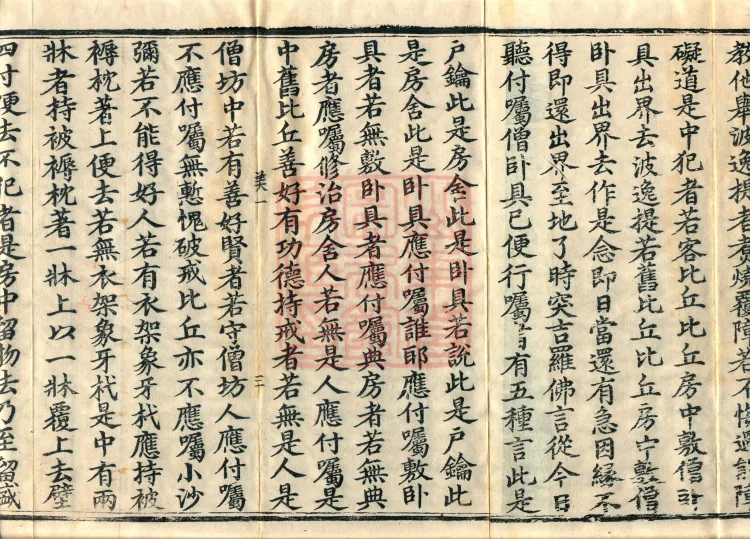 教他舉波逸提者
礙道是中犯者若客比丘比丘房中敷僧卧
具出界去波逸提若舊比丘比丘房中敷僧
卧具出界去作是念即日當還有急因緣不
得即還出界至地了時突吉羅佛言從今日
聽付囑僧卧具已便行囑者有五種言此是
戶鑰此是房舍此是卧具若說此是戶鑰此
是房舍此是卧具應付囑誰耶應付囑敷卧
具者若無敷卧具者應付囑典房者若無典
房者應囑修治房舍人若無是人應付囑是
中舊比丘善好有功德持戒者若無是人是
美一 三
僧坊中若有善好賢者若守僧坊人應付囑
不應付囑無慙愧破戒比丘亦不應囑小沙
彌若不能得好人若有衣架象牙杙應持被
褥枕著上便去若無衣架象牙杙是中有兩
牀者持被褥枕著一牀上以一牀覆上去壁
四寸便去不犯者是房中留物去乃至留盛